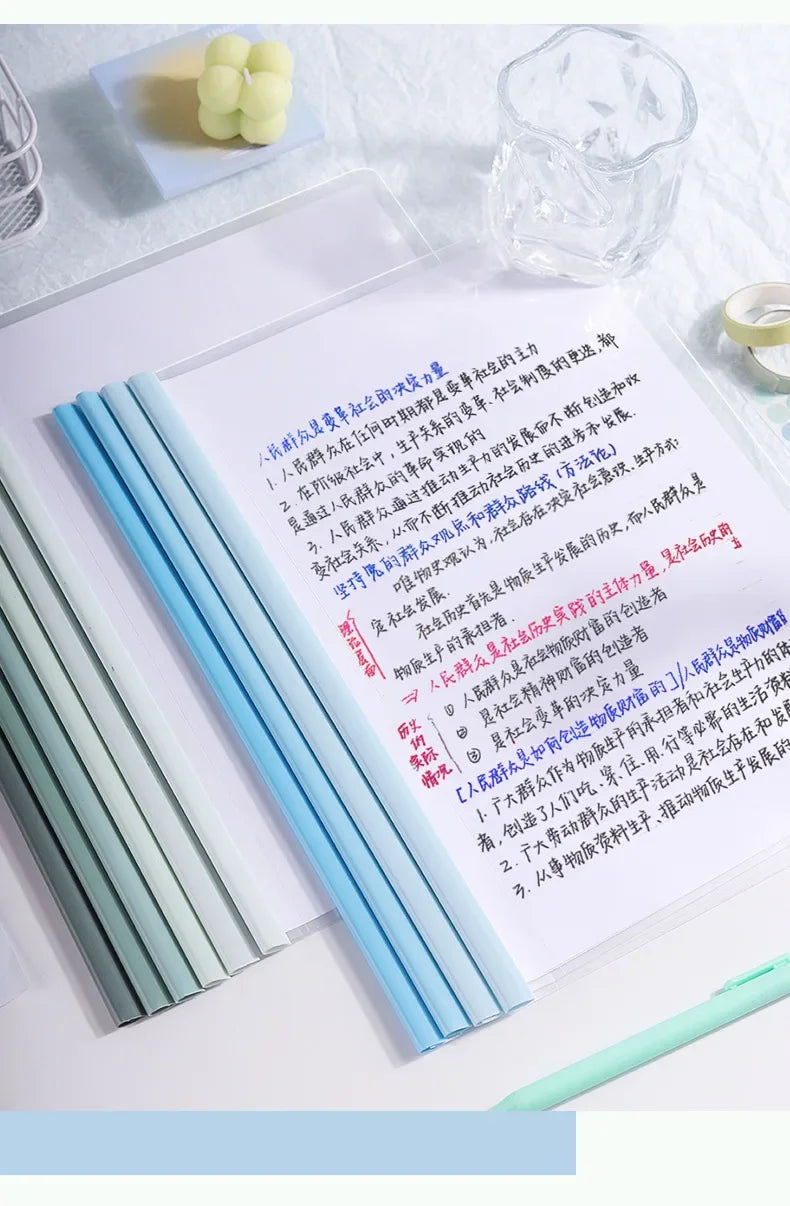 人民群众是变革社会的决定力量
1. 人民群众在任何时期都是变革社会的主力
2. 在阶级社会中，生产关系的变革、社会制度的更迭，都
是通过人民群众的革命实现的
3. 人民群众通过推动生产力的发展而不断创造和改
变社会关系，从而不断推动社会历史的进步和发展.
坚持党的群众观点和群众路线（方法论）
唯物史观认为，社会存在决定社会意识、生产方式
定社会发展.
社会历史首先是物质生产发展的历史，而人民群众是
物质生产的承担者.
理论层面
⇒ 人民群众是社会历史实践的主体力量，是社会历史的主
① 人民群众是社会物质财富的创造者
② 是社会精神财富的创造者
③ 是社会变革的决定力量
历史的实际情况
[人民群众是如何创造物质财富的]/人民群众是物质财富的
1. 广大群众作为物质生产的承担者和社会生产力的体
者，创造了人们吃、穿、住、用、行等必需的生活资料
2. 广大劳动群众的生产活动是社会存在和发展
3. 从事物质资料生产、推动物质生产发展的